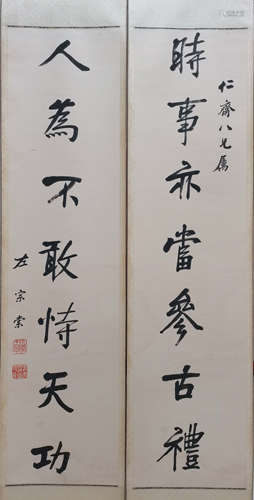 仁齋八兄屬
時事亦當參古禮
人為不敢恃天功
左宗棠